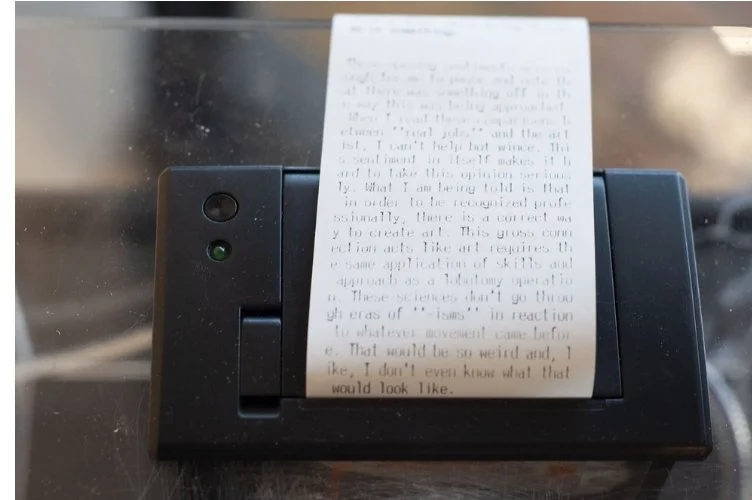 something.
These opening sentiments
ugh for me to pause and note th
at there was something off in th
e way this was being approached.
When I read these comparisons b
etween ""real jobs"" and the art
ist, I can't help but wince. Thi
s sentiment in itself makes it h
ard to take this opinion serious
ly. What I am being told is that
in order to be recognized profe
ssionally, there is a correct wa
y to create art. This gross conn
ection acts like art requires th
e same application of skills and
approach as a lobotomy operatio
n. These sciences don't go throu
gh eras of ""isms"" in reaction
to whatever movement came befor
e. That would be so weird and, l
ike, I don't even know what that
would look like.